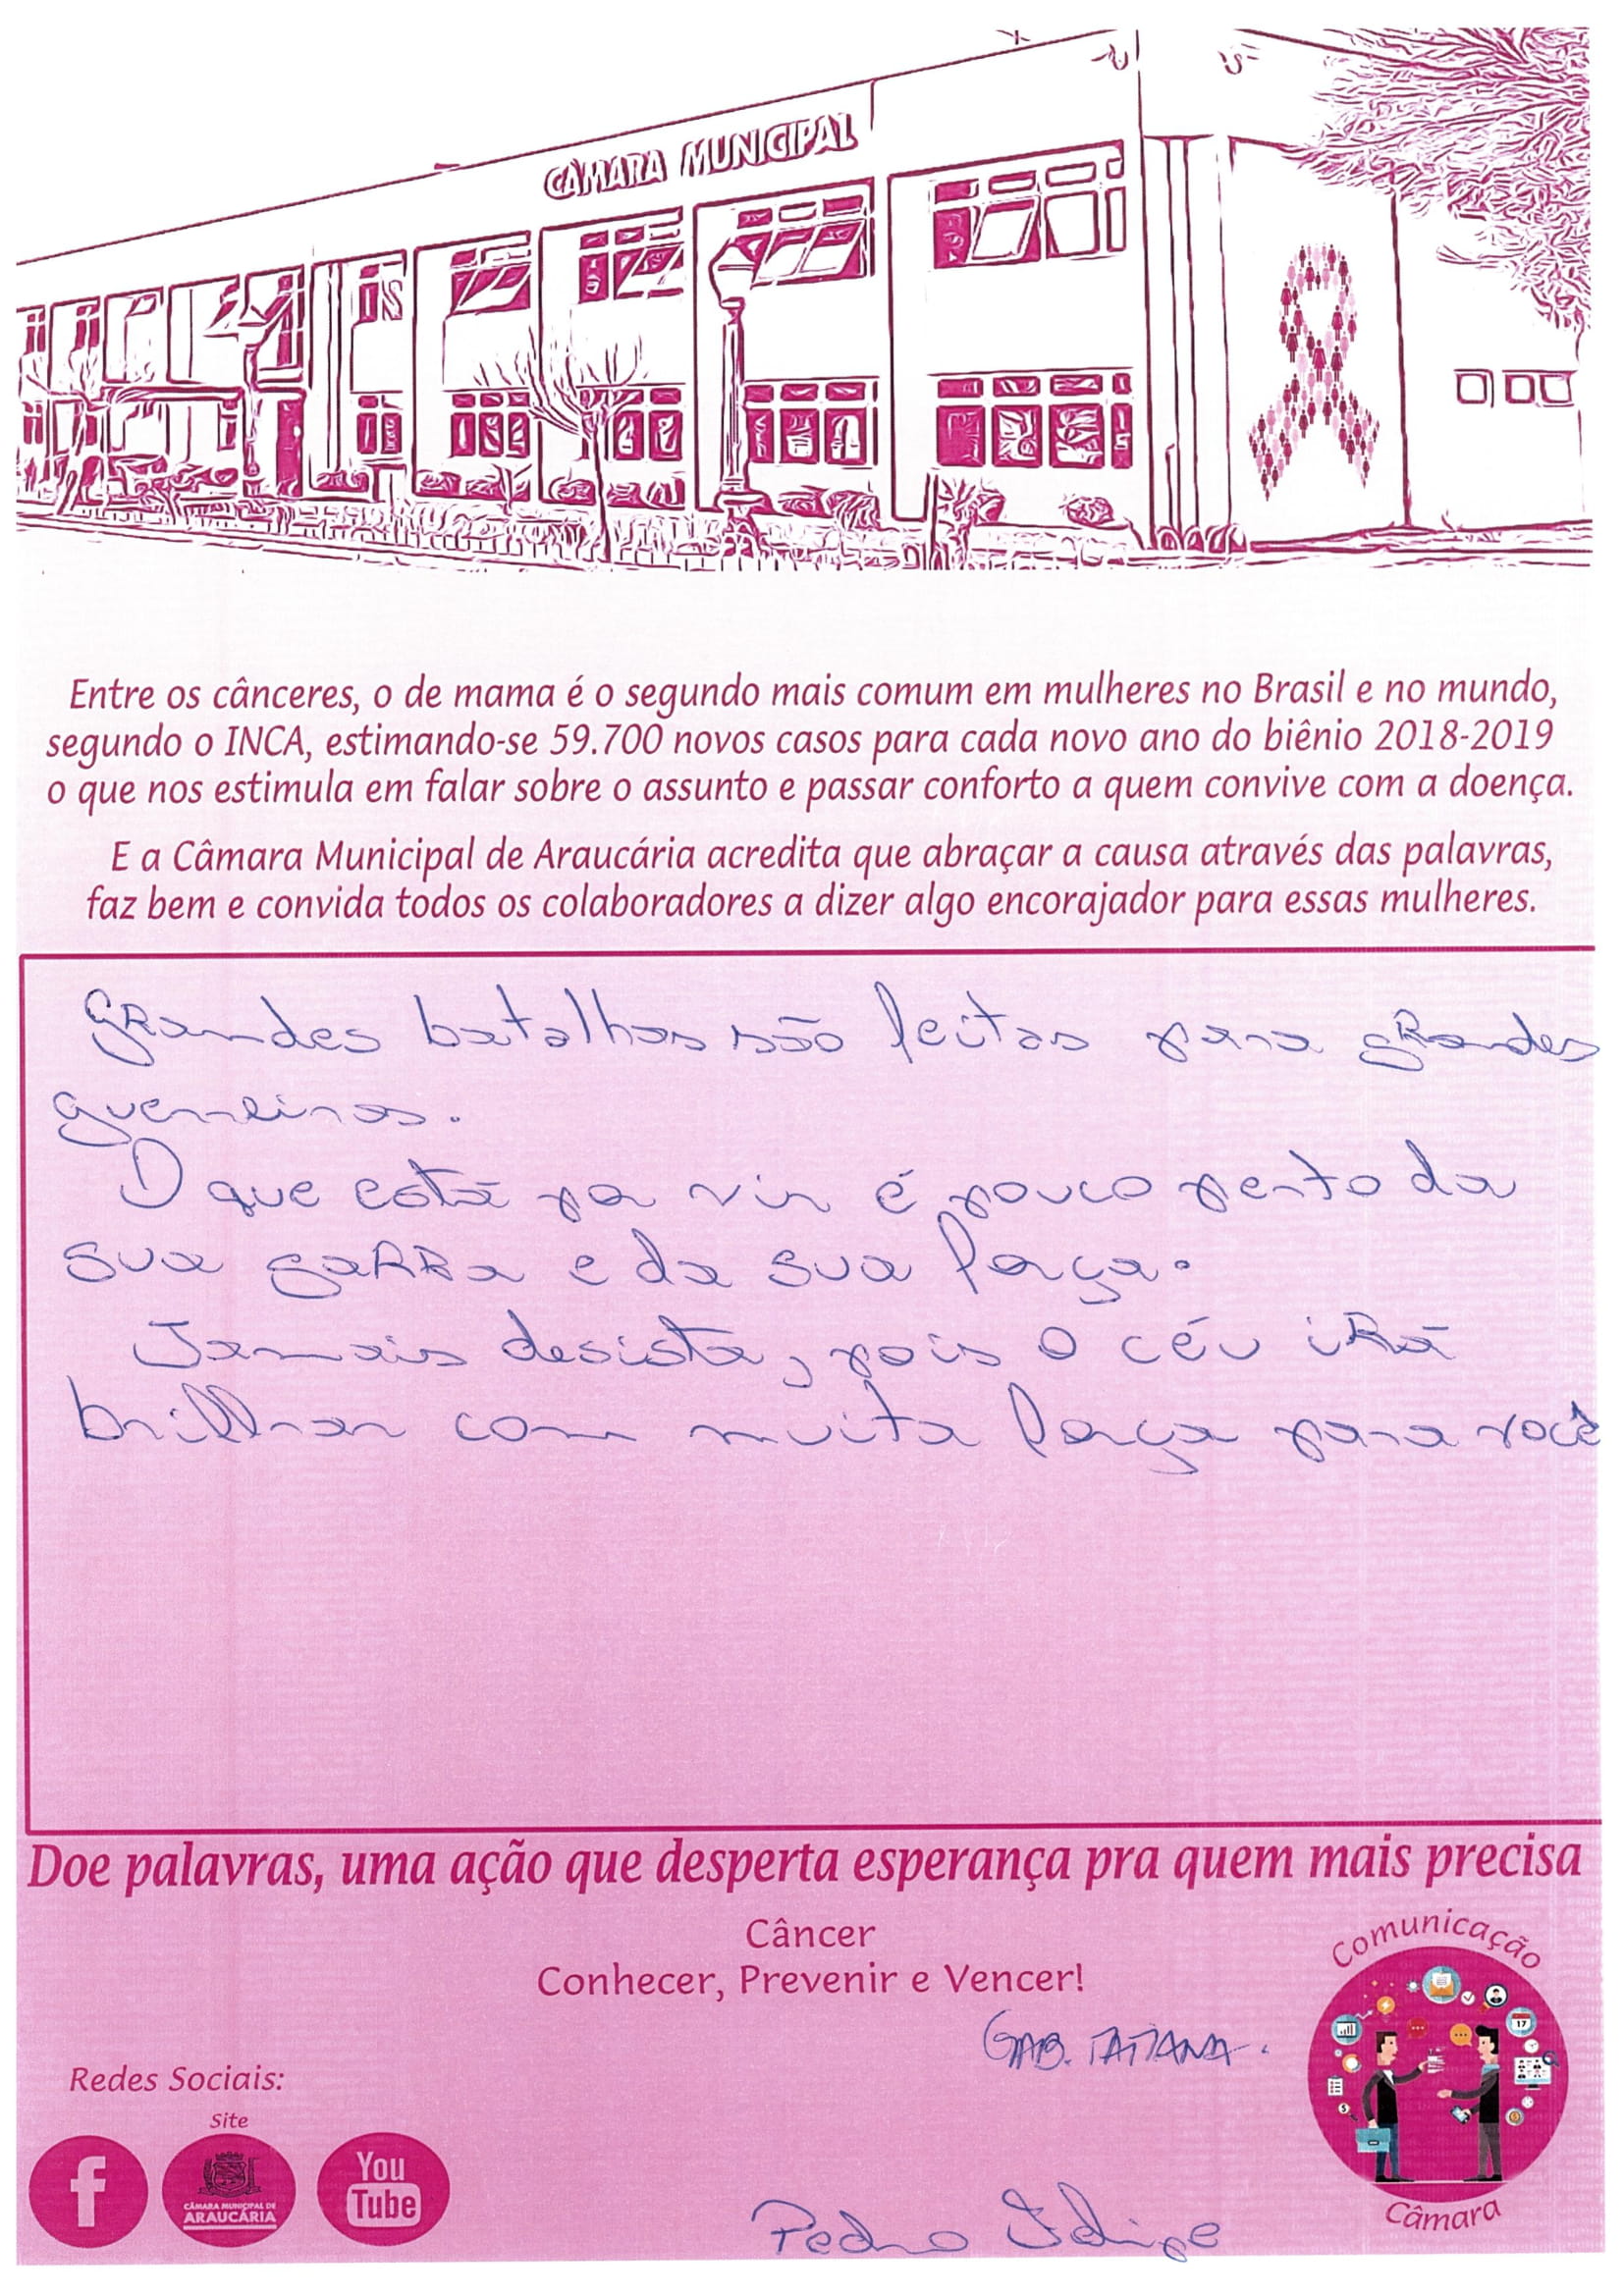 CÂMARA MUNICIPAL
Entre os cânceres, o de mama é o segundo mais comum em mulheres no Brasil e no mundo,
segundo o INCA, estimando-se 59.700 novos casos para cada novo ano do biênio 2018-2019
o que nos estimula em falar sobre o assunto e passar conforto a quem convive com a doença.
E a Câmara Municipal de Araucária acredita que abraçar a causa através das palavras,
faz bem e convida todos os colaboradores a dizer algo encorajador para essas mulheres.
Grandes batalhas são feitas para grandes
guerreiros.
O que está pa vir é pouco perto da
sua garra e da sua força.
Jamais desista, pois o céu irá
brilhar com muita força para você
Doe palavras, uma ação que desperta esperança pra quem mais precisa
Câncer
Conhecer, Prevenir e Vencer!
GAB. TATIANA.
Comunicação
17
Câmara
Redes Sociais:
Site
f
CÂMARA MUNICIPAL DE
ARAUCÁRIA
You
Tube
Pedro Felipe